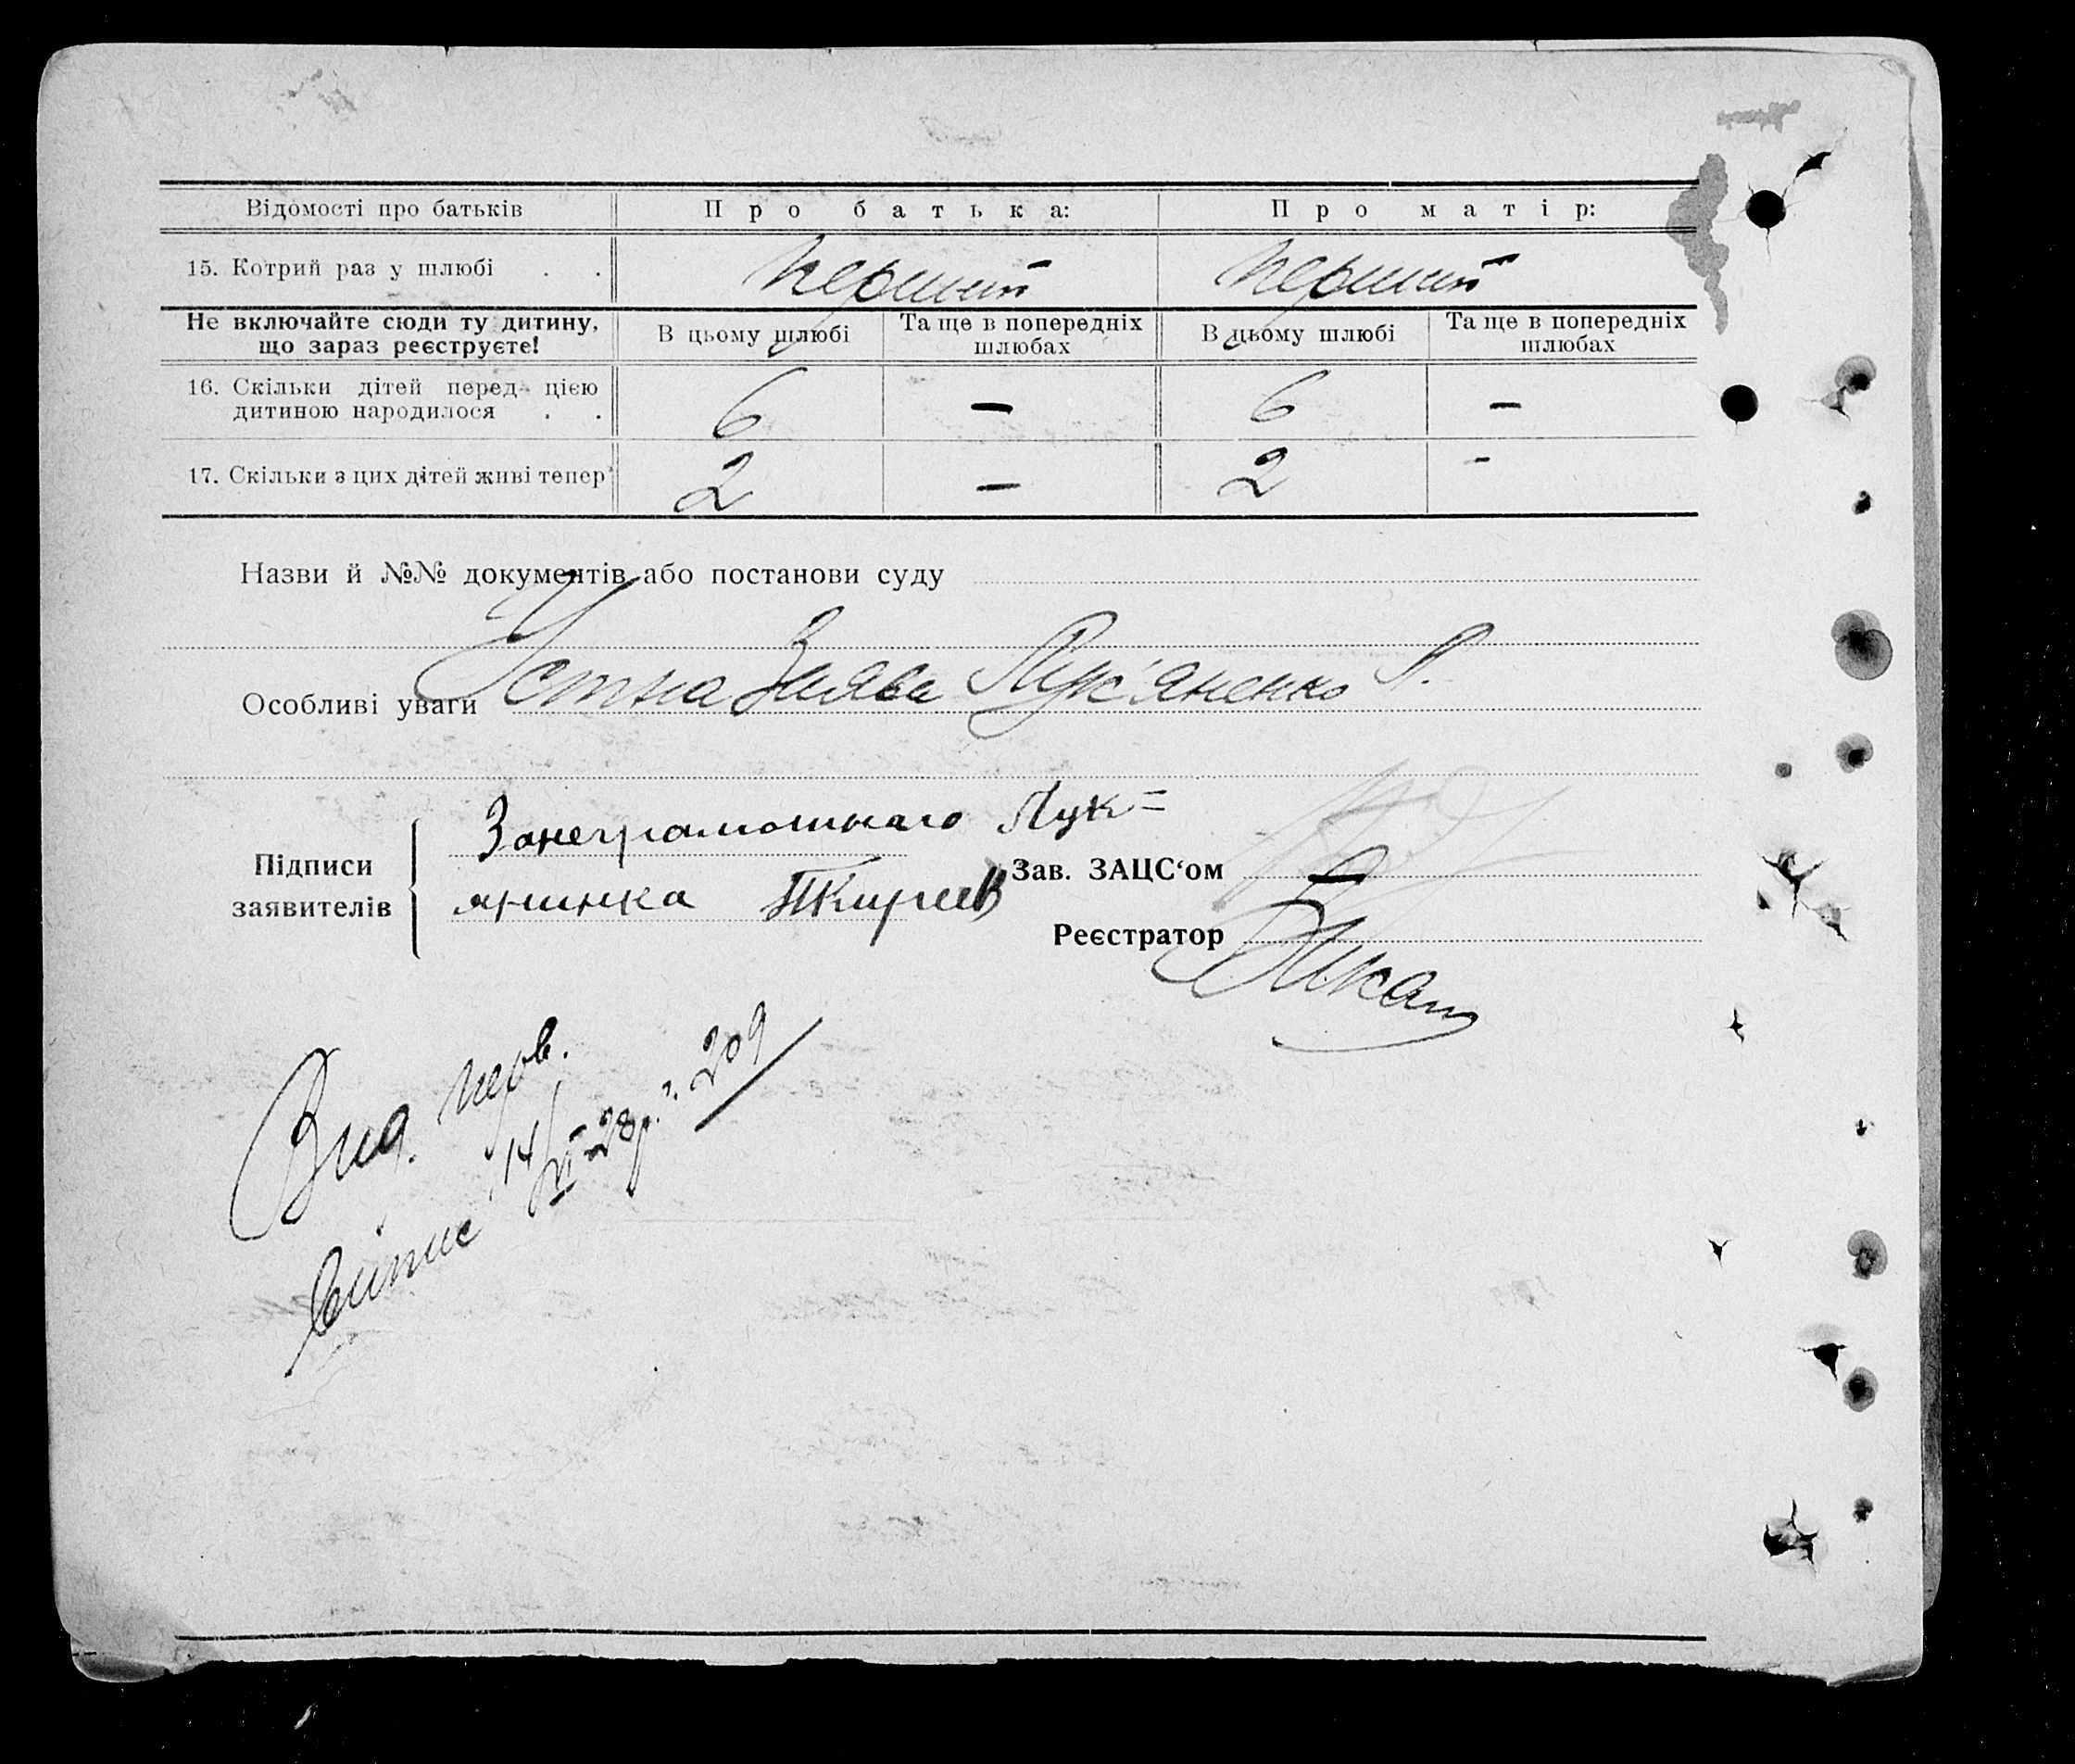 Відомості про батьків Про батька: Про матір:
15. Котрий раз у шлюбі . . перший перший
Не включайте сюди ту дитину, що зараз реєструєте! В цьому шлюбі Та ще в попередніх шлюбах В цьому шлюбі Та ще в попередніх шлюбах
16. Скільки дітей перед цією
дитиною народилося . . 6 — 6 —
17. Скільки з цих дітей живі тепер 2 — 2 -
Назви й №№ документів або постанови суду
Устна Заява Лук'яненко Л.
Особливі уваги
Занеграмотнаго Лук=
Підписи заявителів
янинка
Зав. ЗАЦС‘ом
Реєстратор
Вид. перв.
витис 14/VI-28р. 209